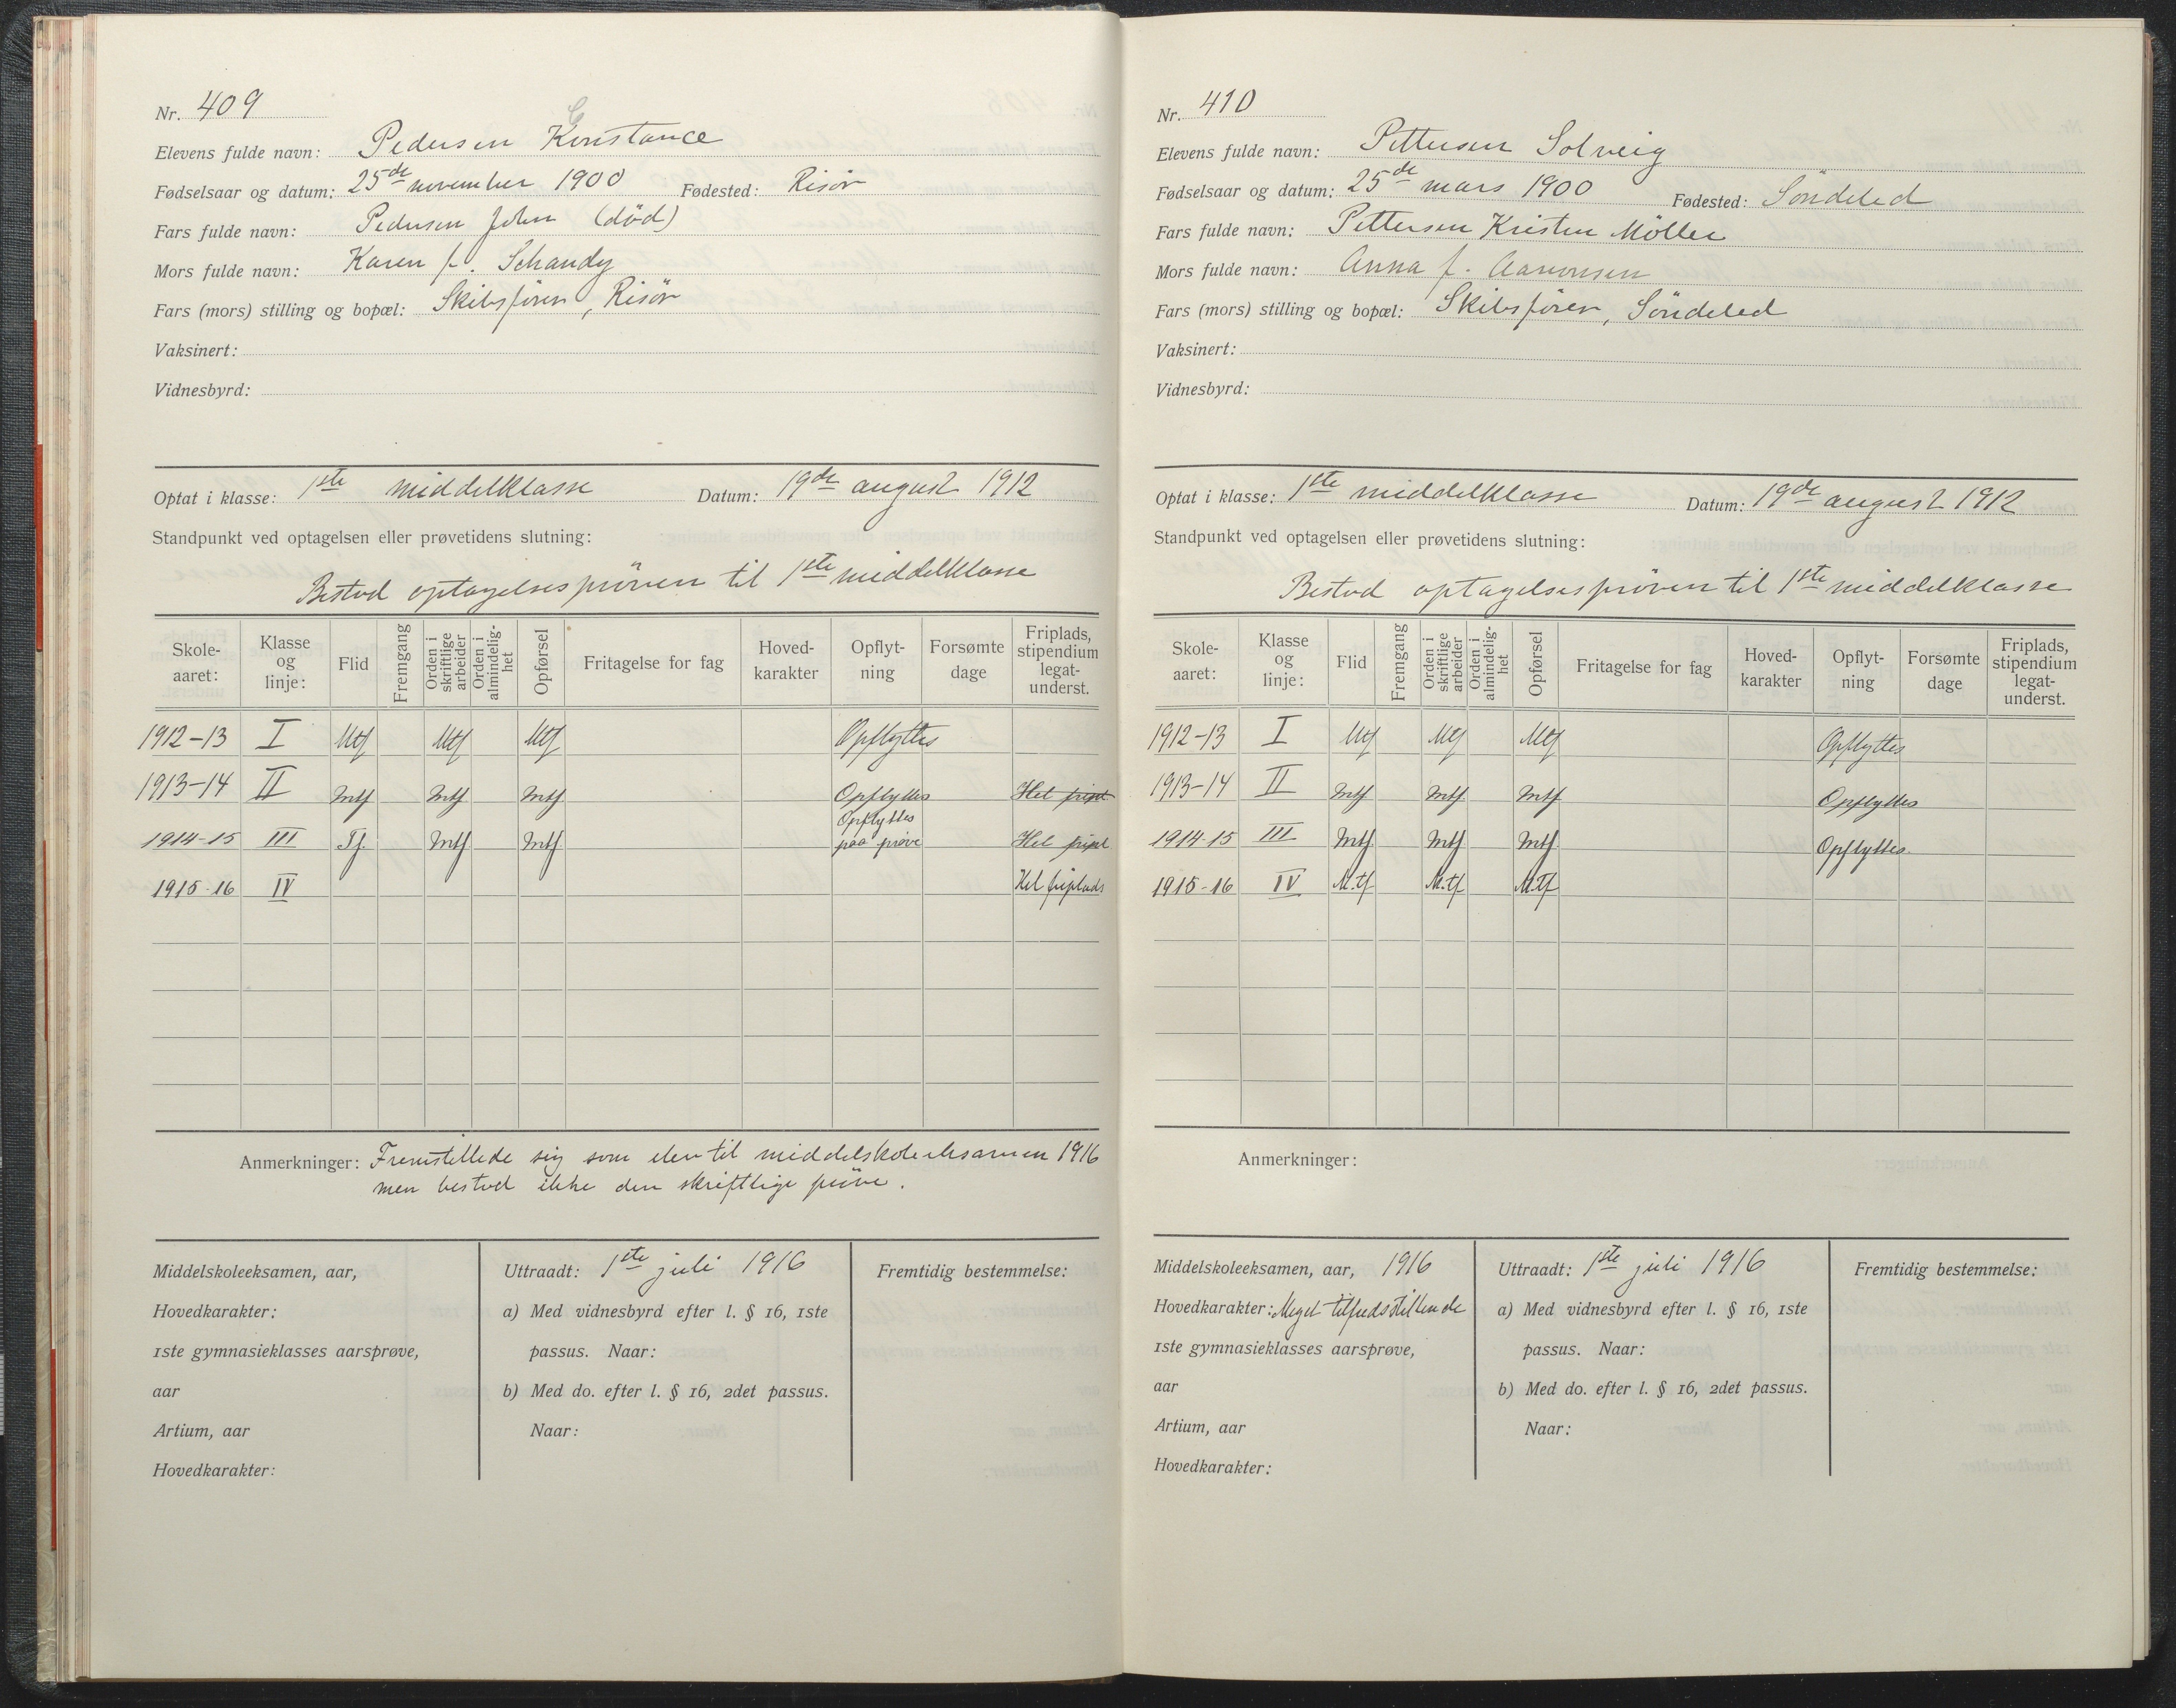 Nr. 409
Elevens fulde navn: Pedersen Konstance
Fødselsaar og datum: 25de november 1900 Fødested: Risör
Fars fulde navn: Pedersen John (död)
Mors fulde navn: Karen f. Schandy
Fars (mors) stilling og bopæl: Skibsförer, Risör
Vaksinert:
Vidnesbyrd:
Optat i klasse: 1ste middelklasse Datum: 19de august 1912
Standpunkt ved optagelsen eller prøvetidens slutning:
Bestod optagelsespröven til 1ste middelklasse
Skole-aaret: Klasse og linje: Flid Fremgang Orden i skriftlige arbeider Orden i almindelig-het Opførsel Fritagelse for fag Hoved-karakter Opflyt-ning Forsømte dage Friplads, stipendium legat-underst.
1912-13 I Mtf Mtf Mtf Opflyttes
1913-14 II Mtf Mtf Mtf Opflyttes Hel fripl.
1914-15 III Tf. Mtf Mtf Opflyttes paa prøve Hel fripl
1915-16 IV Hel friplads
Anmerkninger: Fremstillede sig som elev til middelskoleeksamen 1916
men bestod ikke den skriftlige pröve.
Middelskoleeksamen, aar,
Hovedkarakter:
1ste gymnasieklasses aarsprøve,
aar
Artium, aar
Hovedkarakter:
Uttraadt: 1ste juli 1916
a) Med vidnesbyrd efter l. § 16, 1ste
passus. Naar:
b) Med do. efter l. § 16, 2det passus.
Naar:
Fremtidig bestemmelse:
Nr. 410
Elevens fulde navn: Pettersen Solveig
Fødselsaar og datum: 25de mars 1900 Fødested: Söndeled
Fars fulde navn: Pettersen Kristen Möller
Mors fulde navn: Anna f. Aanonsen
Fars (mors) stilling og bopæl: Skibsförer, Söndeled
Vaksinert:
Vidnesbyrd:
Optat i klasse: 1ste middelklasse Datum: 19de august 1912
Standpunkt ved optagelsen eller prøvetidens slutning:
Bestod optagelsespröven til 1ste middelklasse
Skole-aaret: Klasse og linje: Flid Fremgang Orden i skriftlige arbeider Orden i almindelig-het Opførsel Fritagelse for fag Hoved-karakter Opflyt-ning Forsømte dage Friplads, stipendium legat-underst.
1912-13 I Mtf Mtf Mtf Opflyttes
1913-14 II Mtf Mtf Mtf Opflyttes
1914-15 III Mtf Mtf Mtf Opflyttes.
1915-16 IV M.tf M.tf M.tf
Anmerkninger:
Middelskoleeksamen, aar, 1916
Hovedkarakter: Meget tilfredsstillende
1ste gymnasieklasses aarsprøve,
aar
Artium, aar
Hovedkarakter:
Uttraadt: 1ste juli 1916
a) Med vidnesbyrd efter l. § 16, 1ste
passus. Naar:
b) Med do. efter l. § 16, 2det passus.
Naar:
Fremtidig bestemmelse: